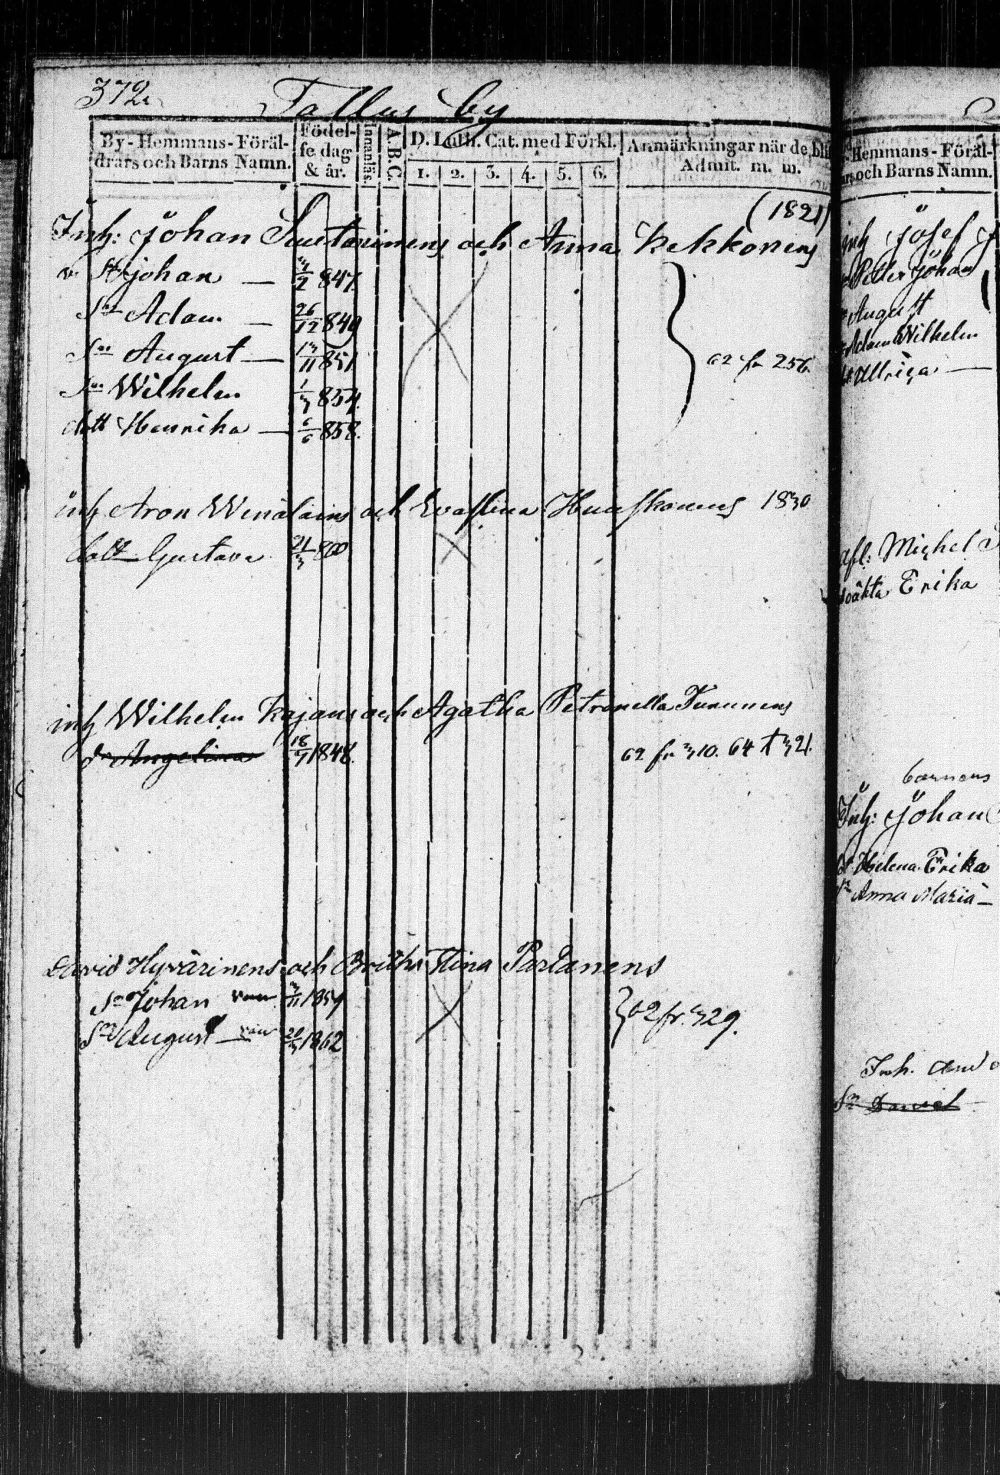 372.
Tallus by
By-Hemmans-Föräl-
drars och Barns Namn.
Födel-
se dag
& år.
Innanläs.
A.B.C.
D. Luth. Cat. med Förkl.
1. 2. 3. 4. 5. 6.
Anmärkningar när de bli
Admit. m. m.
(1821)
Inh: Johan Sutarinens och Anna Kekkonens
Johan — 847.
Sn Adam — 26/12 849
Sn August — 13/11 851
Sn Wilhelm 854.
dott Henrika — 6/6 858.
62 fr 256.
inh Aron Winälains och Evastina 1830
dott Gustava 21/3 860
inh Wilhelm Kajans och Agatha Petronella Turunens
dr Angelina 18/7 1848.
62 fr 310. 64 † 321.
David Hyvärinens och Britha Stina Partanens
Sn Johan 3/11 1859
Sn August 20/3 1862
62 fr. 329.
Hemmans-Föräl-
och Barns Namn.
inh Josef
Petter Johan
August
Adam Wilhelm
Ullrica —
afl: Michel
oäkta Erika
barnens
Inh: Johan
Helena Erika
Anna Maria —
Inh.
Sn Daniel